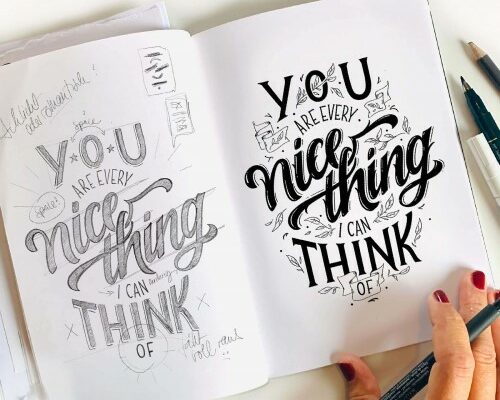 YOU
ARE EVERY
nice
thing
I CAN
THINK
OF
space
space!
YOU
ARE EVERY
nice
thing
I CAN
THINK
OF